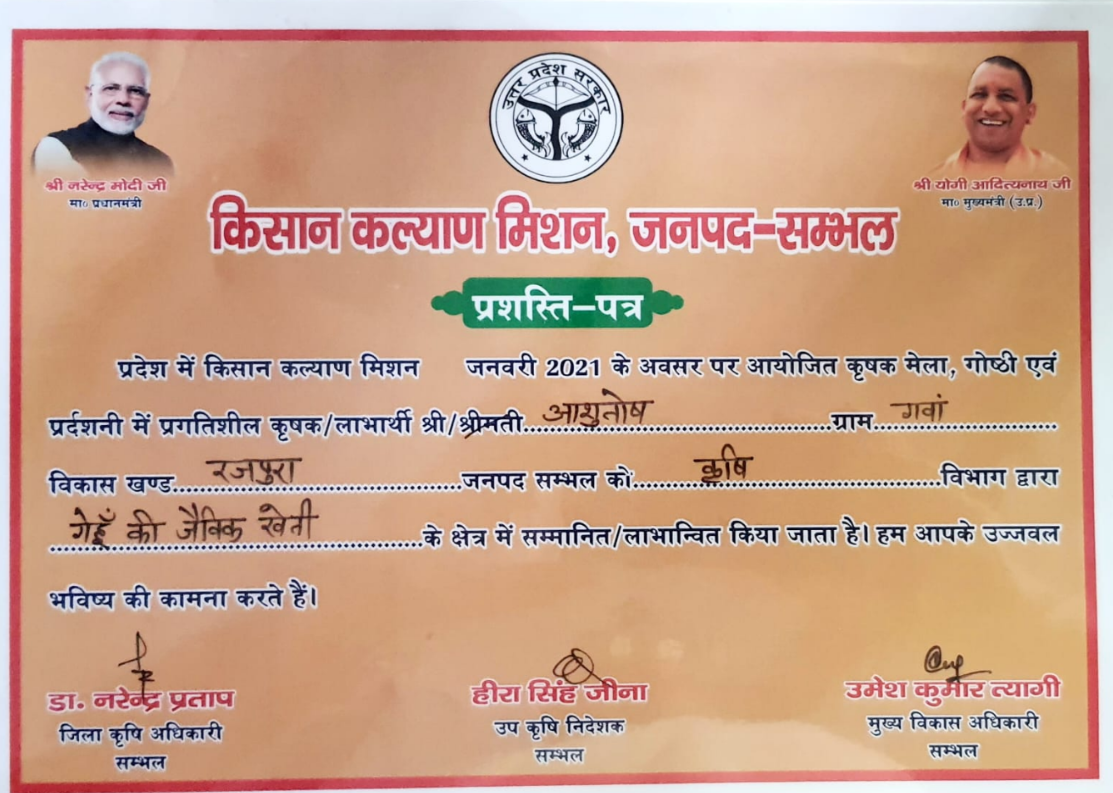 उत्तर प्रदेश सरकार
श्री नरेन्द्र मोदी जी
मा० प्रधानमंत्री
श्री योगी आदित्यनाथ जी
मा० मुख्यमंत्री (उ.प्र.)
किसान कल्याण मिशन, जनपद-सम्भल
प्रशस्ति-पत्र
प्रदेश में किसान कल्याण मिशन जनवरी 2021 के अवसर पर आयोजित कृषक मेला, गोष्ठी एवं
प्रर्दशनी में प्रगतिशील कृषक/लाभार्थी श्री/श्रीमती आशुतोष ग्राम गवां
विकास खण्ड रजपुरा जनपद सम्भल को कृषि विभाग द्वारा
गेहूँ की जैविक खेती के क्षेत्र में सम्मानित/लाभान्वित किया जाता है। हम आपके उज्जवल
भविष्य की कामना करते हैं।
डा. नरेन्द्र प्रताप
जिला कृषि अधिकारी
सम्भल
हीरा सिंह जीना
उप कृषि निदेशक
सम्भल
उमेश कुमार त्यागी
मुख्य विकास अधिकारी
सम्भल